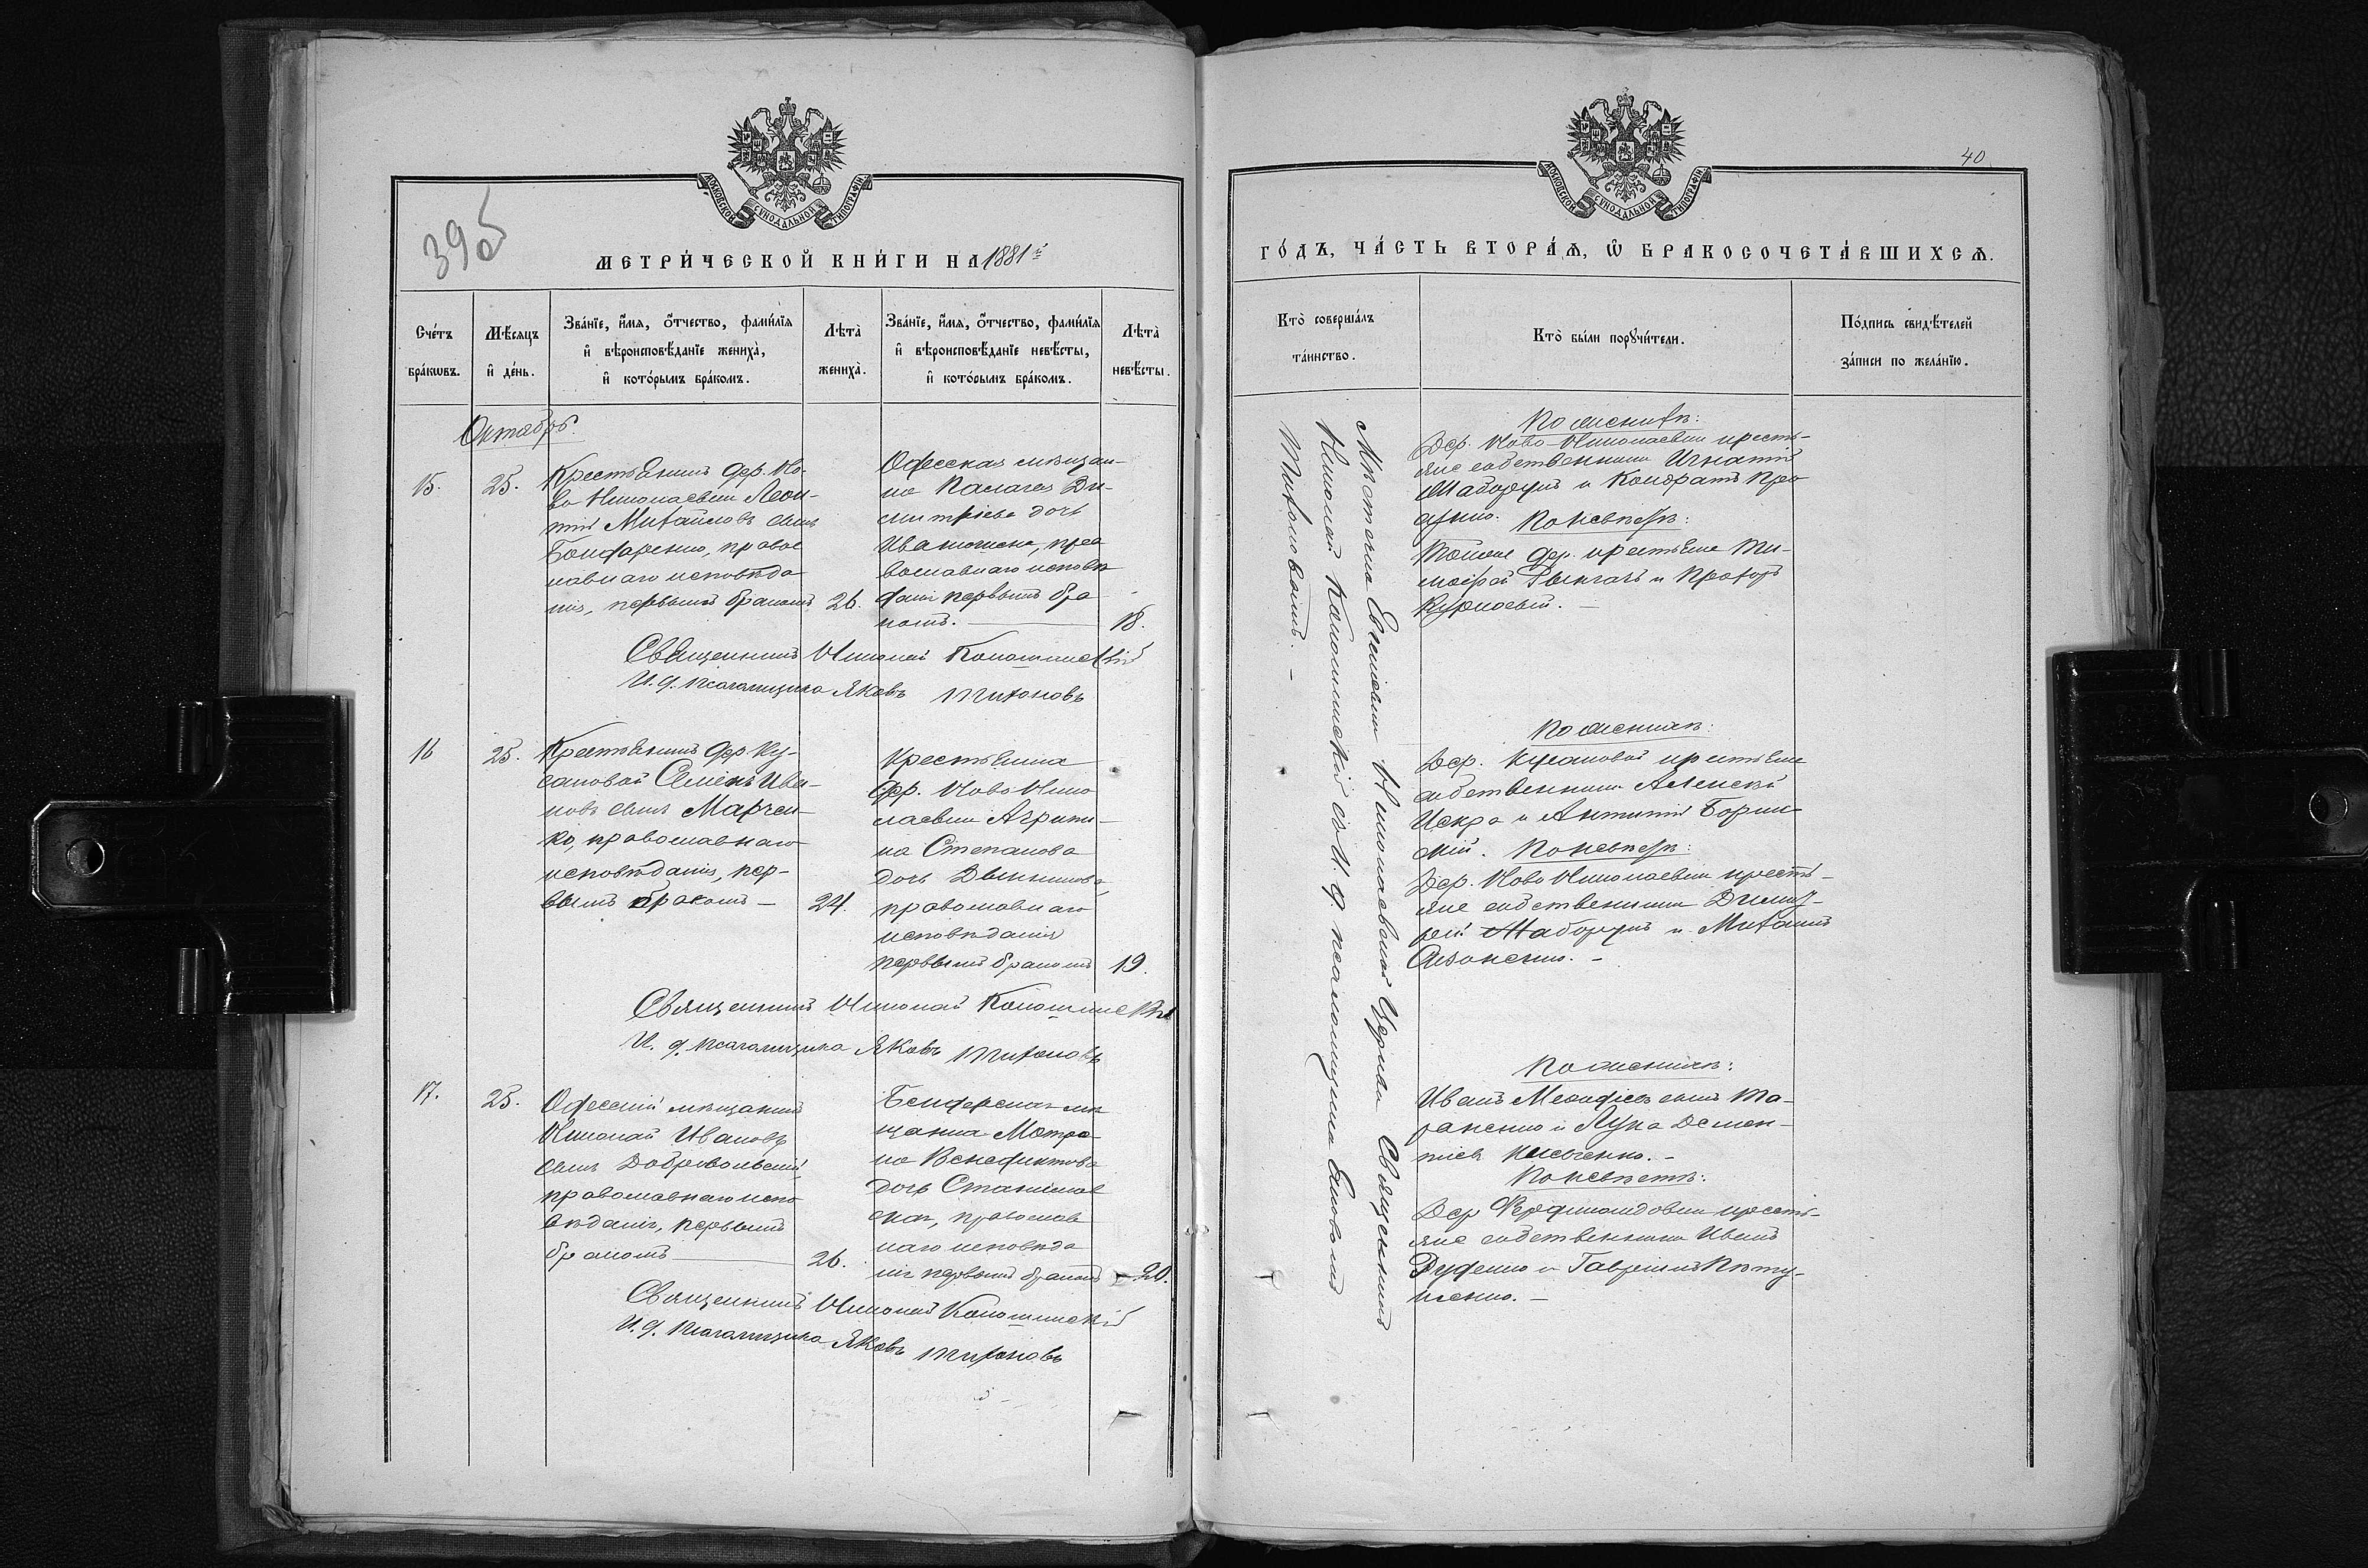 39об
МОСКОВСКОЙ СѴНОДАЛЬНОЙ ТИПОГРАФІИ
МЕТРИ́ЧЕСКОЙ КНИ́ГИ НА 1881й
Сче́тъ бра́кѡвъ.
Мѣ́сяцъ и҆ де́нь.
Зва́нїе, и҆́мѧ, ѻ҆́тчество, фами́лїѧ
и҆ вѣроисповѣ́данїе жениха̀,
и҆ кото́рымъ бра́комъ.
Лѣта̀ жениха̀.
Зва́нїе, и҆́мѧ, ѻ҆́тчество, фами́лїѧ
и҆ вѣроисповѣ́данїе невѣ́сты,
и҆ кото́рымъ бра́комъ.
Лѣта̀ невѣ́сты.
Октябрь.
15.
25.
Крестьянинъ дер. Но-
во Николаевки Леон-
тій Михайловъ сынъ
Бондаренко, право
славнаго исповѣда
нія, первымъ бракомъ
26.
Одесская мѣщан-
ка Палагея Ди-
митріева дочь
православнаго исповѣ
данія первымъ бра
комъ.
18.
Священникъ Николай
И. д. псаломщика Яковъ Тихоновъ
16
25.
Крестьянинъ дер. Ку-
сановой Семенъ Ива-
новъ сынъ Марчен-
ко, православнаго
исповѣданія, пер-
вымъ бракомъ —
24.
Крестьянка
дер. Ново Нико
лаевки Агрипи-
на Степанова
дочь
православнаго
исповѣданія
первымъ бракомъ
19.
Священникъ Николай
И. д. псаломщика Яковъ Тихоновъ
17.
25.
Одесскій мѣщанинъ
Николай Ивановъ
сынъ Добровольскій,
православнаго испо
вѣданія, первымъ
бракомъ
26.
Бендерская мѣ
щанка Матро
на Венедиктова
дочь Станислав
ская, православ
наго исповѣда
нія первымъ бракомъ
20.
Священникъ Николай
И. д. псаломщика Яковъ Тихоновъ
40
МОСКОВСКОЙ СѴНОДАЛЬНОЙ ТИПОГРАФІИ
ГО́ДЪ, ЧА́СТЬ ВТОРА́Ѧ, Ѡ҆ БРАКОСОЧЕТА́ВШИХСѦ.
Кто̀ соверша́лъ
та́инство.
Кто̀ бы́ли порꙋчи́тели.
По́дпись свидѣ́телей
за́писи по жела́нїю.
Николаевской Церкви Священникъ
Николай съ И. д. псаломщика Яковомъ
Тихоновымъ. —
По женихѣ:
Дер. Ново Николаевки кресть-
яне собственники Игнатій
и Кондратъ
По невѣстѣ:
Тойже дер. крестьяне Ти-
мофей и Прохоръ
По женихѣ:
Дер. Кусановой крестьяне
собственники Алексѣй
Искра и Антипій
По невѣстѣ:
Дер. Ново Николаевки кресть-
яне собственники Димит-
рій и Михаилъ
По женихѣ:
Иванъ сынъ Та-
раненко и Лука Демен-
тіевъ
По невѣстѣ:
Дер. Фердинандовки кресть-
яне собственники Иванъ
Руденко и Гавріилъ